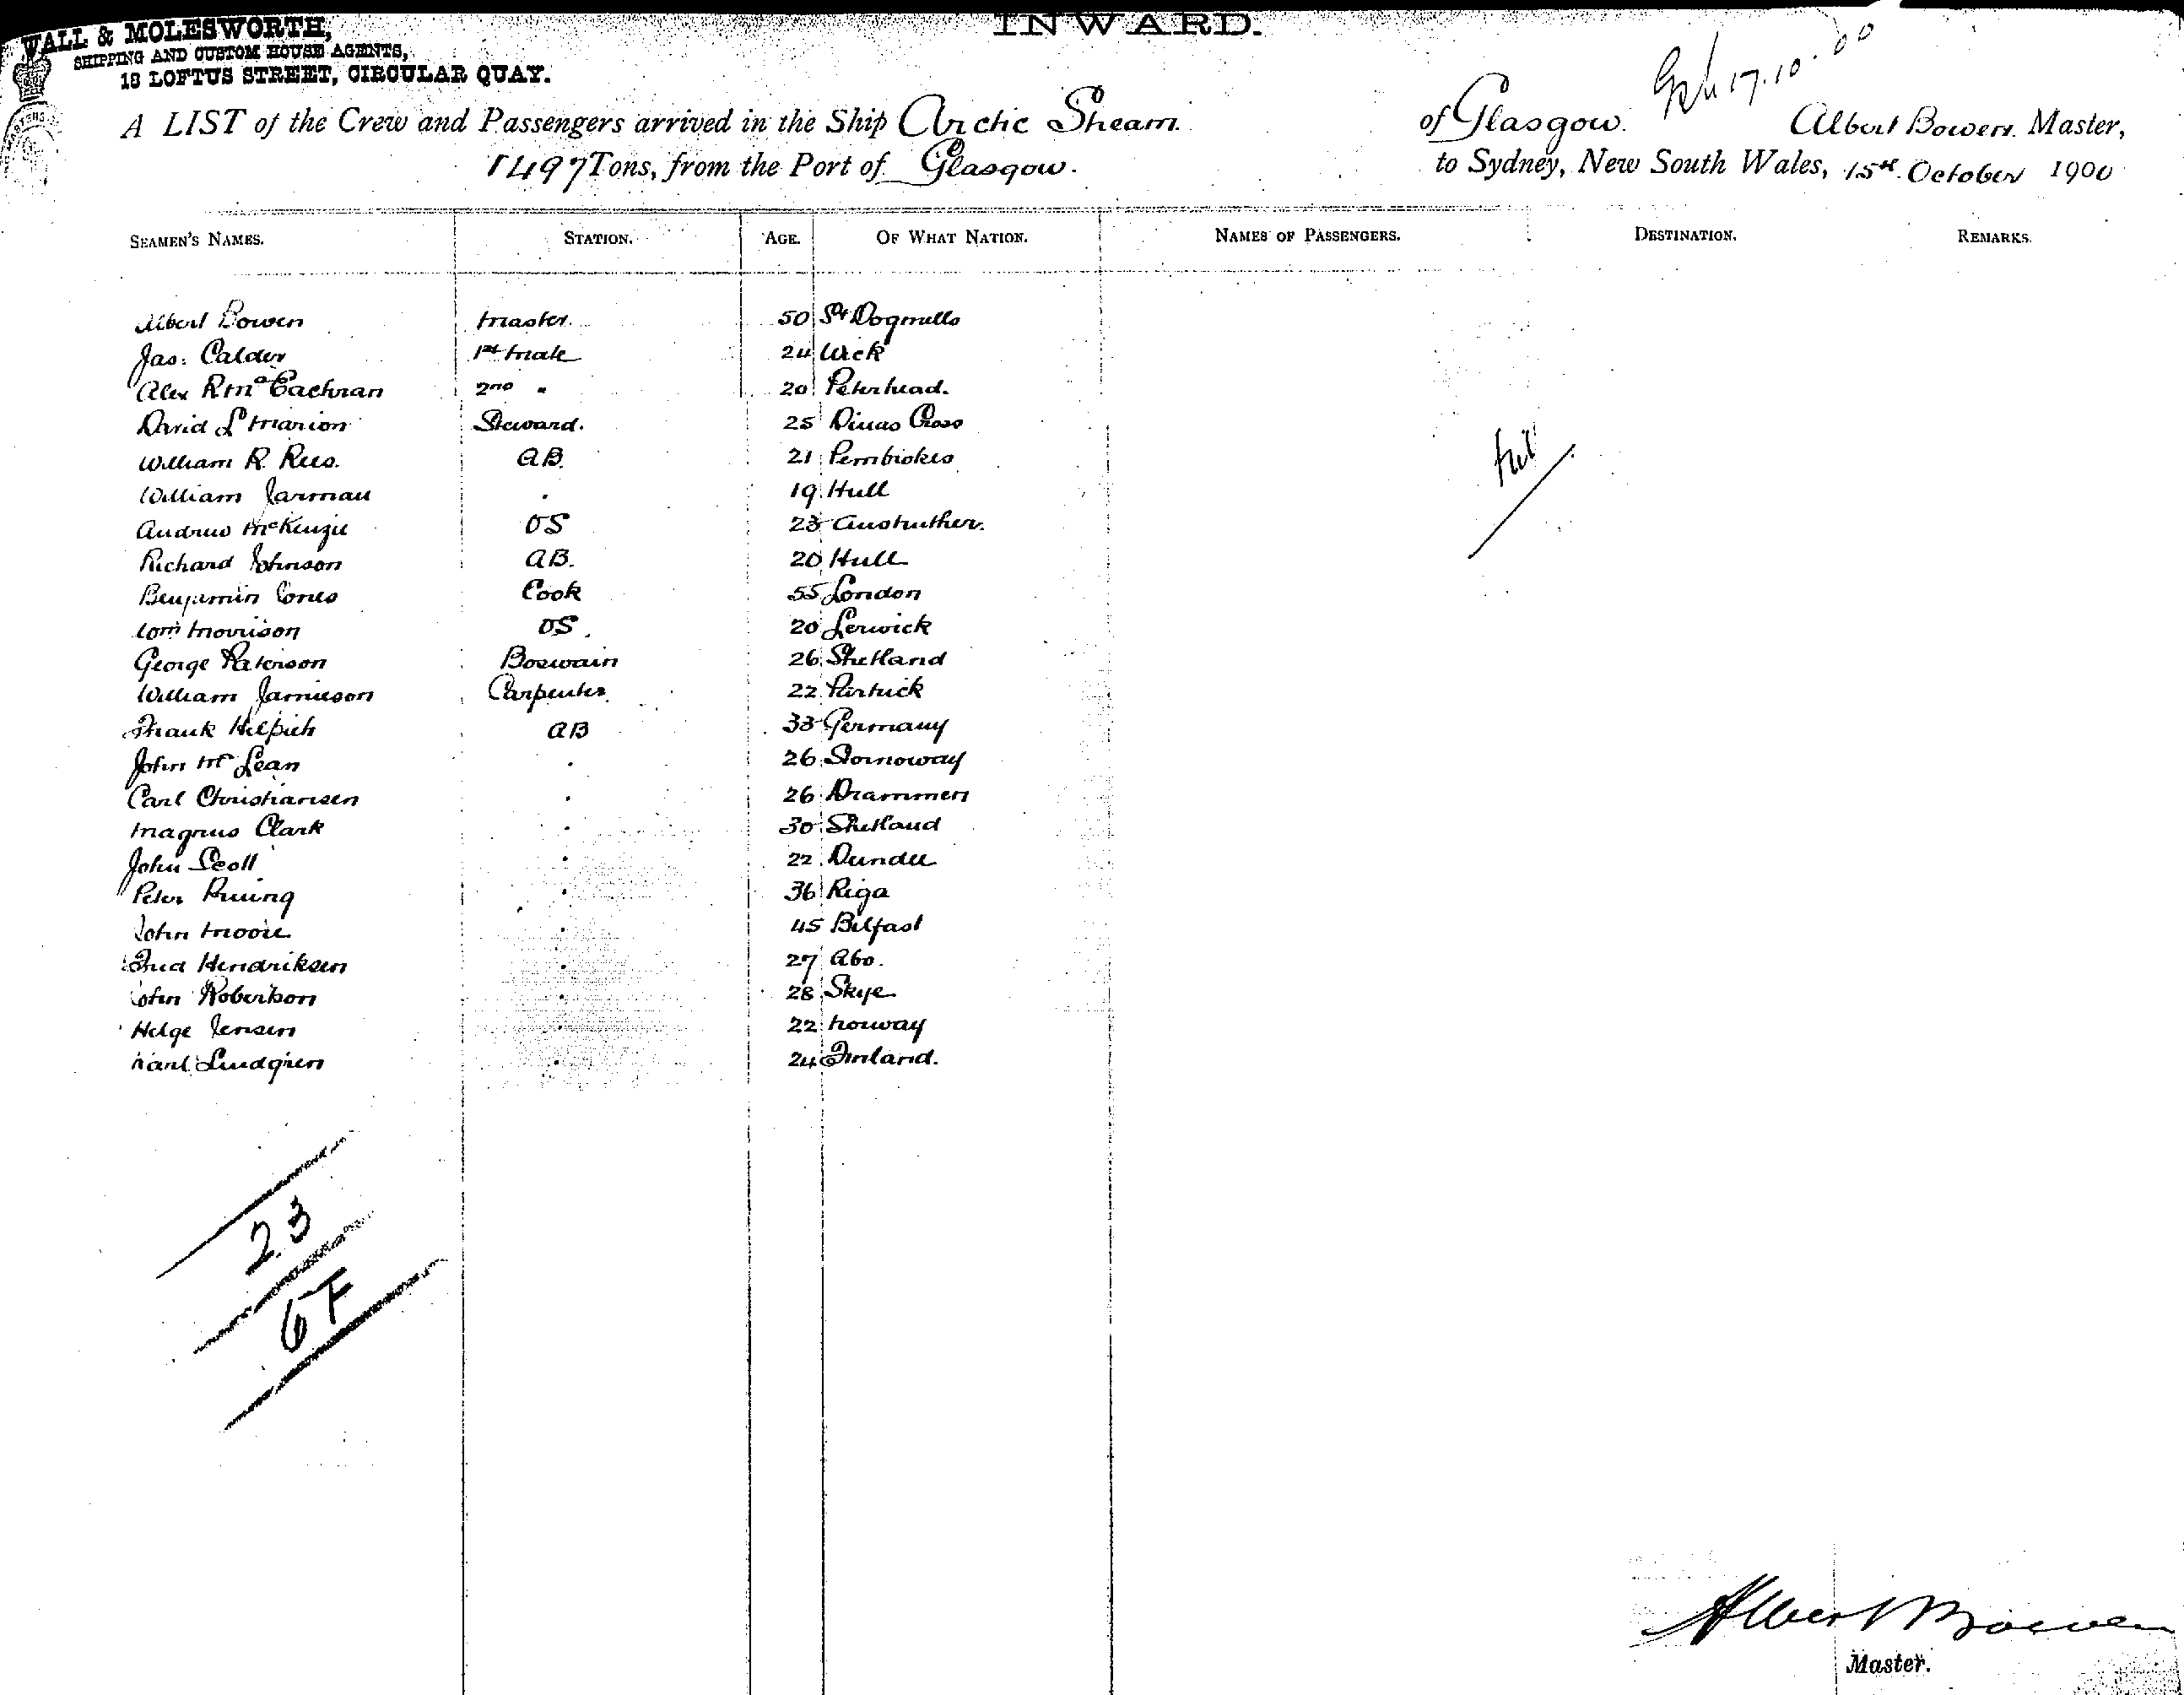 INWARD.
WALL & MOLESWORTH,
SHIPPING AND CUSTOM HOUSE AGENTS,
18 LOFTUS STREET, CIRCULAR QUAY.
17.10.00
A LIST of the Crew and Passengers arrived in the Ship Arctic Stream. of Glasgow. Albert Bowen. Master,
1497 Tons, from the Port of Glasgow. to Sydney, New South Wales, 15th October 1900
SEAMEN'S NAMES. STATION. AGE. OF WHAT NATION. NAMES OF PASSENGERS. DESTINATION. REMARKS.
Albert Bowen Master. 50 St Dogmells
Jas: Calder 1st Mate 24 Wick
Alex R McEachran 2nd " 20 Peterhead.
David L Marion Steward. 25 Dinas Cross
William R. Rees. AB. 21 Pembrokes
William Jarman . 19 Hull
Andrew McKenzie OS 23 Anstruther.
Richard Johnson AB. 20 Hull
Benjamin Jones Cook 55 London
Tom Morrison OS. 20 Lerwick
George Paterson Boswain 26 Shetland
William Jamieson Carpenter. 22 Partick
Frank Helpich AB 33 Germany
John McLean . 26 Stornoway
Carl Christiansen . 26 Drammen
Magnus Clark . 30 Shetland
John Scott . 22 Dundee
Peter . 36 Riga
John Moore . 45 Belfast
Fred Hendriksen . 27 Abo.
John Robertson . 28 Skye
Helge Jensen . 22 Norway
Karl Lindgren . 24 Finland.
Nil
23
6F
Albert Bowen
Master.